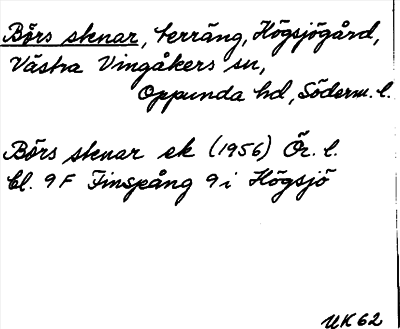 Börs stenar, terräng, Högsjögård,
Västra Vingåkers sn,
Oppunda hd, Söderm. l.
Börs stenar ek (1956) Ör. l.
bl. 9F Finspång 9i Högsjö
UK 62